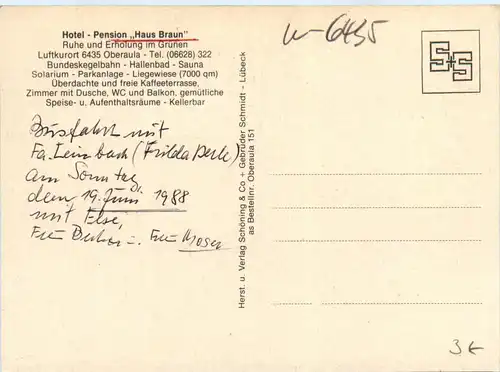 Hotel - Pension „Haus Braun"
Ruhe und Erholung im Grünen
Luftkurort 6435 Oberaula - Tel. (06628) 322
Bundeskegelbahn - Hallenbad - Sauna
Solarium - Parkanlage - Liegewiese (7000 qm)
Überdachte und freie Kaffeeterrasse,
Zimmer mit Dusche, WC und Balkon, gemütliche
Speise- u. Aufenthaltsräume - Kellerbar
Busfahrt mit
Fa. (Frilda
am Sonntag
dem 19. Juni 1988
mit Else,
Frau Frau Moser
Herst. u. Verlag Schöning & Co + Gebrüder Schmidt - Lübeck
as Bestellnr. Oberaula 151
w-6435
S+S
3€